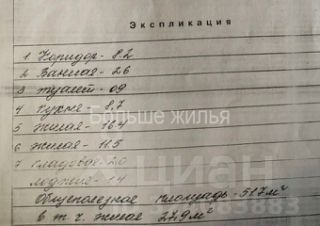 Экспликация
1 Коридор - 8.2
2 Ванная - 2.6
3 Туалет - 0.9
4 Кухня - 8,7
5 Жилая - 16.4
6 Жилая - 11.5
7 Кладовое - 2.0
лоджия - 1.4
Общеполезная площадь - 51.7 м²
в т.ч. жилая 27.9 м²
Больше жилья
циан